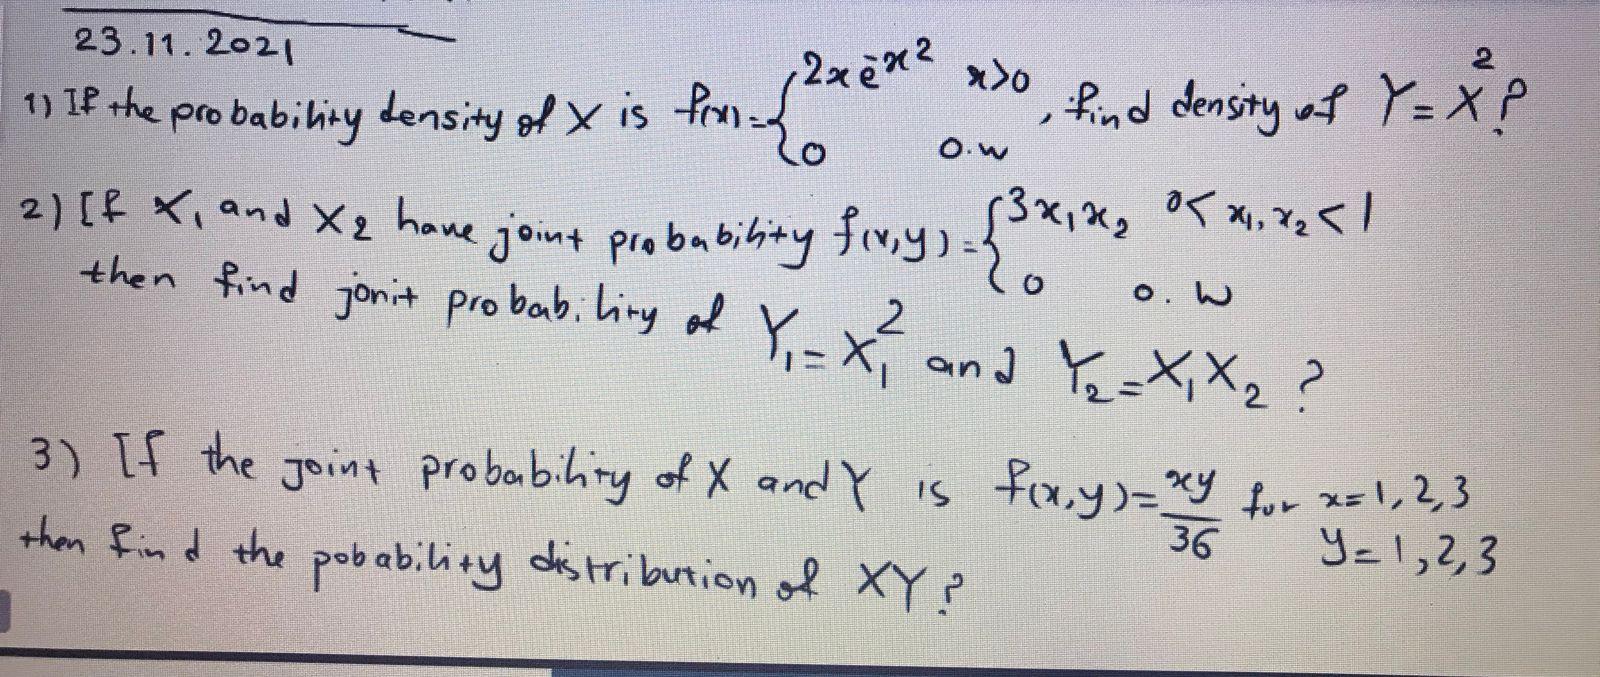 23.11.2021
1) If the probability density of X is f(x)={2xe^-x^2 x>0, find density of Y=X^2?
0 o.w
2) If X₁ and X₂ have joint probability f(x,y)={3x₁x₂ 0<x₁,x₂<1
0 o.w
then find jonit probability of Y₁=X₁² and Y₂=X₁X₂?
3) If the joint probability of X and Y is f(x,y)=xy/36 for x=1,2,3
y=1,2,3
then find the pobability distribution of XY?